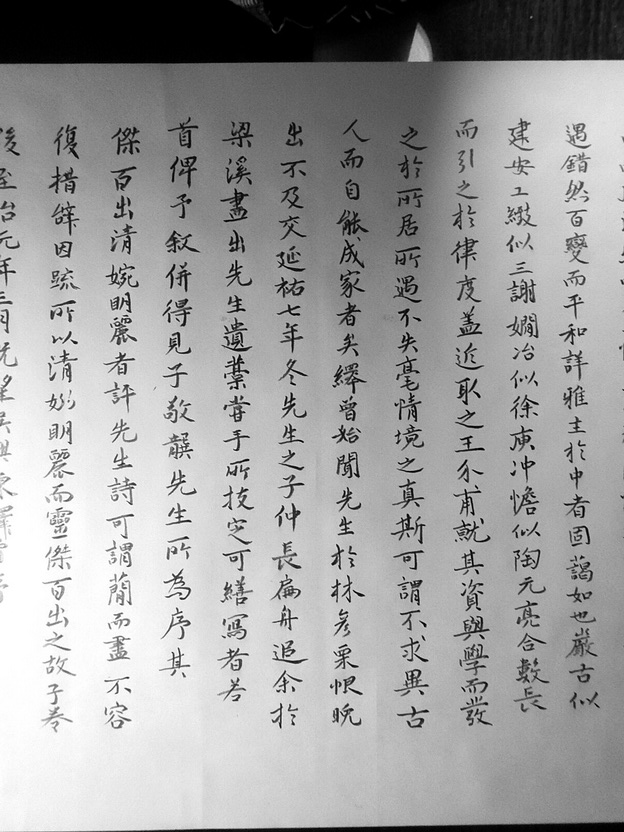 遇錯然百變而平和詳雅主於中者固藹如也嚴古似
建安工緻似三謝嫺冶似徐庾沖憺似陶元亮合數長
而引之於律度盖近取之王介甫就其資與學而發
之於所居所遇不失毫情境之真斯可謂不求異古
人而自能成家者矣繹曾始聞先生於林彥栗恨晚
出不及交延祐七年冬先生之子仲長扁舟過余於
梁溪盡出先生遺藁嘗手所技定可繕寫者若
首俾予敘併得見子敬龔先生所為序其
傑百出清婉明麗者評先生詩可謂簡而盡不容
復措辭因疏所以清婉明麗而靈傑百出之故于卷
後至治元年三月